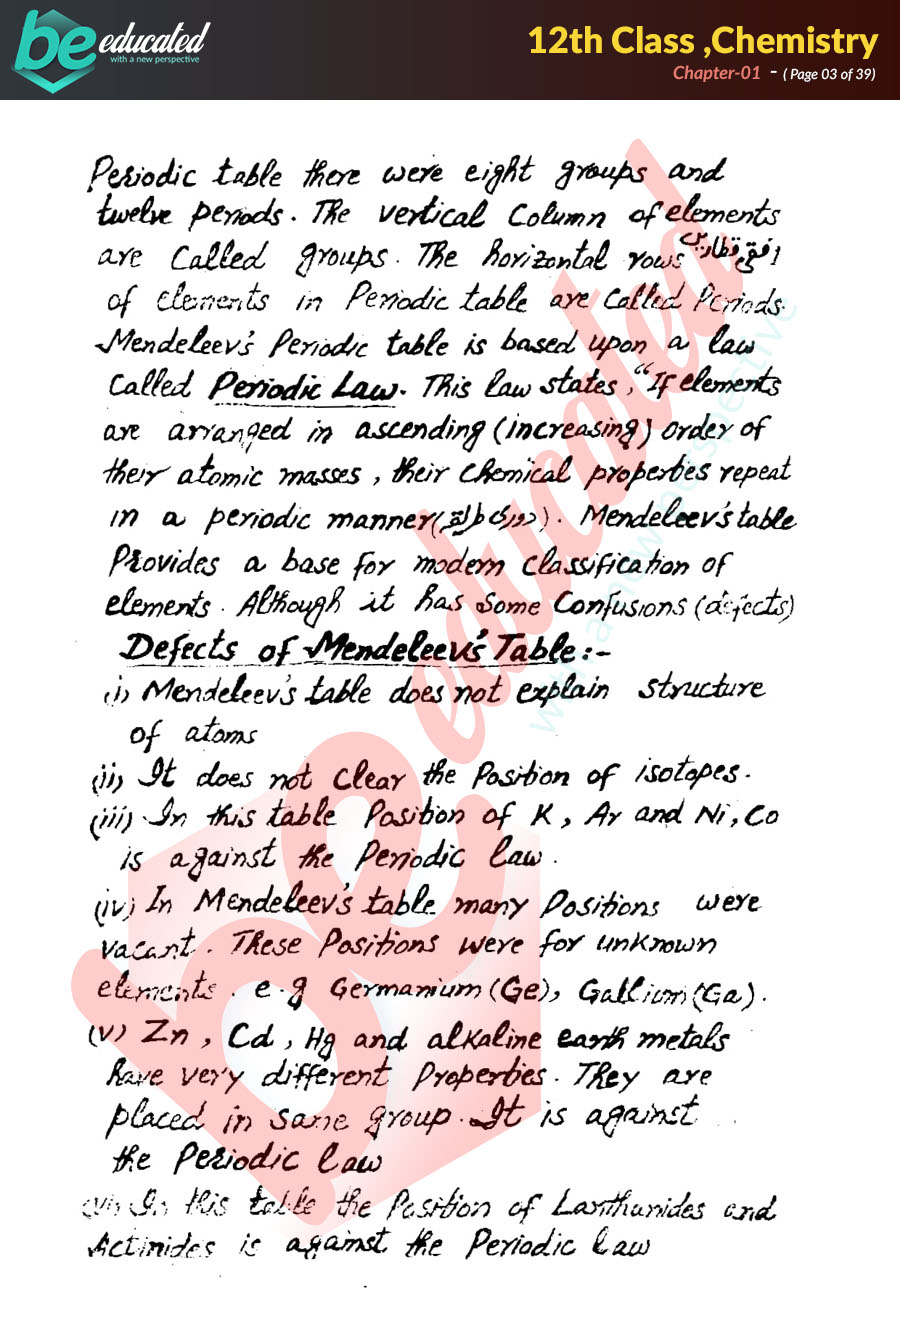 be educated
with a new perspective
12th Class ,Chemistry
Chapter-01 - ( Page 03 of 39)
Periodic table there were eight groups and
twelve periods. The vertical Column of elements
are Called groups. The horizontal rows افقی قطاریں
of elements in Periodic table are Called Periods.
Mendeleev's Periodic table is based upon a law
Called Periodic Law. This law states, "If elements
are arranged in ascending (increasing) order of
their atomic masses, their chemical properties repeat
in a periodic manner( ). Mendeleev's table
Provides a base for modern classification of
elements. Although it has some Confusions (defects)
Defects of Mendeleev's Table:-
(i) Mendeleev's table does not explain structure
of atoms
(ii) It does not clear the Position of isotopes.
(iii) In this table Position of K, Ar and Ni, Co
is against the Periodic law.
(iv) In Mendeleev's table many Positions were
vacant. These Positions were for unknown
elements. e.g Germanium (Ge), Gallium (Ga).
(v) Zn, Cd, Hg and alkaline earth metals
have very different Properties. They are
placed in same group. It is against
the Periodic law
(vi) In this table the Position of Lanthanides and
Actinides is against the Periodic law
be educated
with a new perspective